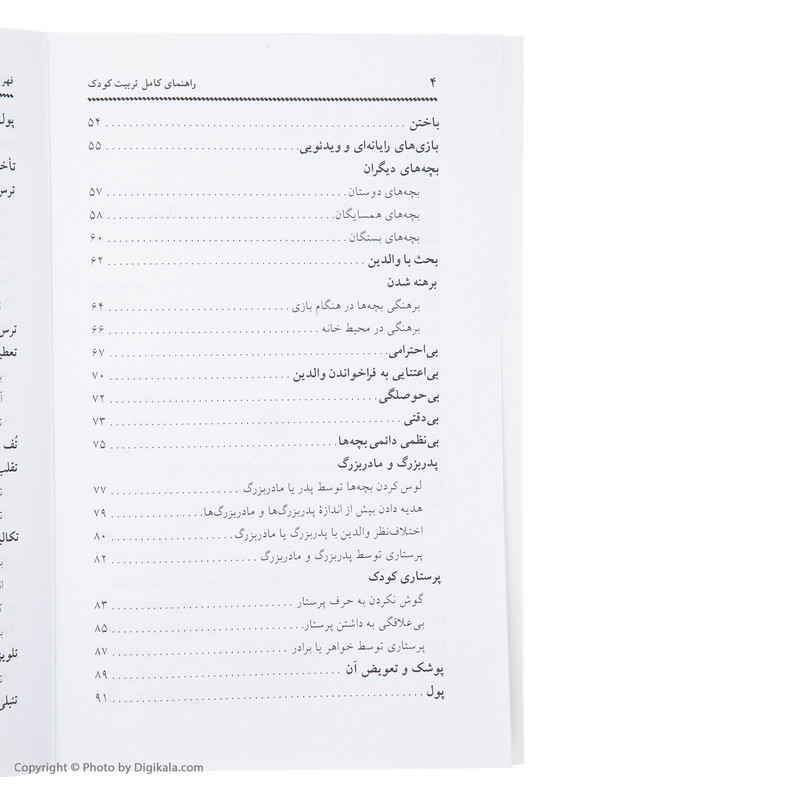 ۴ راهنمای کامل تربیت کودک
باختن ۵۴
بازی‌های رایانه‌ای و ویدئویی ۵۵
بچه‌های دیگران
بچه‌های دوستان ۵۷
بچه‌های همسایگان ۵۸
بچه‌های بستگان ۶۰
بحث با والدین ۶۲
برهنه شدن
برهنگی بچه‌ها در هنگام بازی ۶۴
برهنگی در محیط خانه ۶۶
بی‌احترامی ۶۷
بی‌اعتنایی به فراخواندن والدین ۷۰
بی‌حوصلگی ۷۲
بی‌دقتی ۷۳
بی‌نظمی دائمی بچه‌ها ۷۵
پدربزرگ و مادربزرگ
لوس کردن بچه‌ها توسط پدر یا مادربزرگ ۷۷
هدیه دادن بیش از اندازهٔ پدربزرگ‌ها و مادربزرگ‌ها ۷۹
اختلاف‌نظر والدین با پدربزرگ یا مادربزرگ ۸۰
پرستاری توسط پدربزرگ و مادربزرگ ۸۲
پرستاری کودک
گوش نکردن به حرف پرستار ۸۳
بی‌علاقگی به داشتن پرستار ۸۵
پرستاری توسط خواهر یا برادر ۸۷
پوشک و تعویض آن ۸۹
پول ۹۱
پول
ترس
تُف
تنبلی
Copyright © Photo by Digikala.com